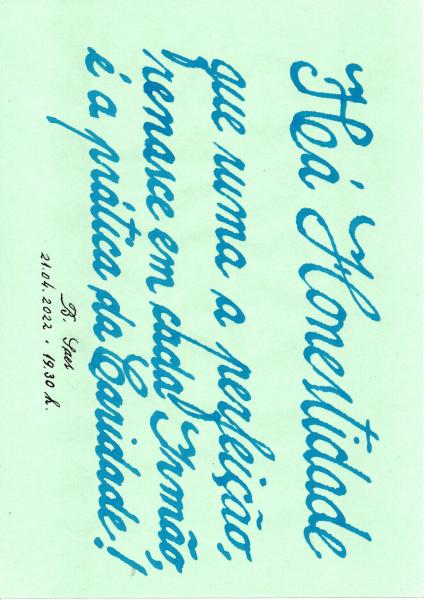 Há Honestidade
que ruma a perfeição,
renasce em cada Irmão,
é a prática da Caridade!
21.04.2022 · 19.30 h.